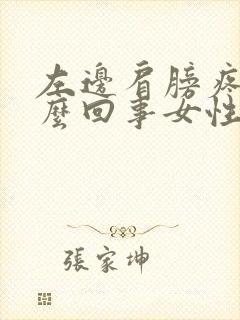 左邊肩膀疼
麼回事女性
張家坤